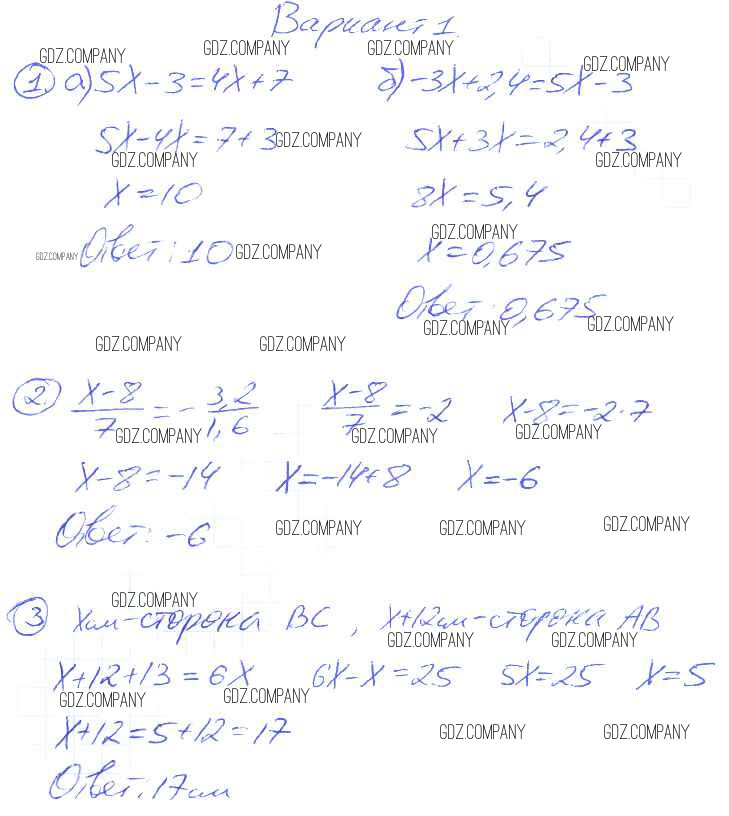 Вариант 1.
GDZ.COMPANY GDZ.COMPANY GDZ.COMPANY GDZ.COMPANY
1. а) 5x-3=4x+7 б) -3x+2,4=5x-3
5x-4x=7+3 GDZ.COMPANY 5x+3x=2,4+3
GDZ.COMPANY GDZ.COMPANY
x=10 8x=5,4
GDZ.COMPANY
GDZ.COMPANY Ответ: 10 GDZ.COMPANY x=0,675
Ответ: 0,675
GDZ.COMPANY GDZ.COMPANY
GDZ.COMPANY GDZ.COMPANY
2. (x-8)/7 = -3,2/1,6 (x-8)/7 = -2 x-8=-2·7
GDZ.COMPANY GDZ.COMPANY GDZ.COMPANY
x-8=-14 x=-14+8 x=-6
Ответ: -6 GDZ.COMPANY GDZ.COMPANY GDZ.COMPANY
GDZ.COMPANY
3 xсм-сторона BC, x+12см-сторона AB
GDZ.COMPANY GDZ.COMPANY
x+12+13=6x 6x-x=25 5x=25 x=5
GDZ.COMPANY GDZ.COMPANY
x+12=5+12=17 GDZ.COMPANY GDZ.COMPANY
Ответ: 17см